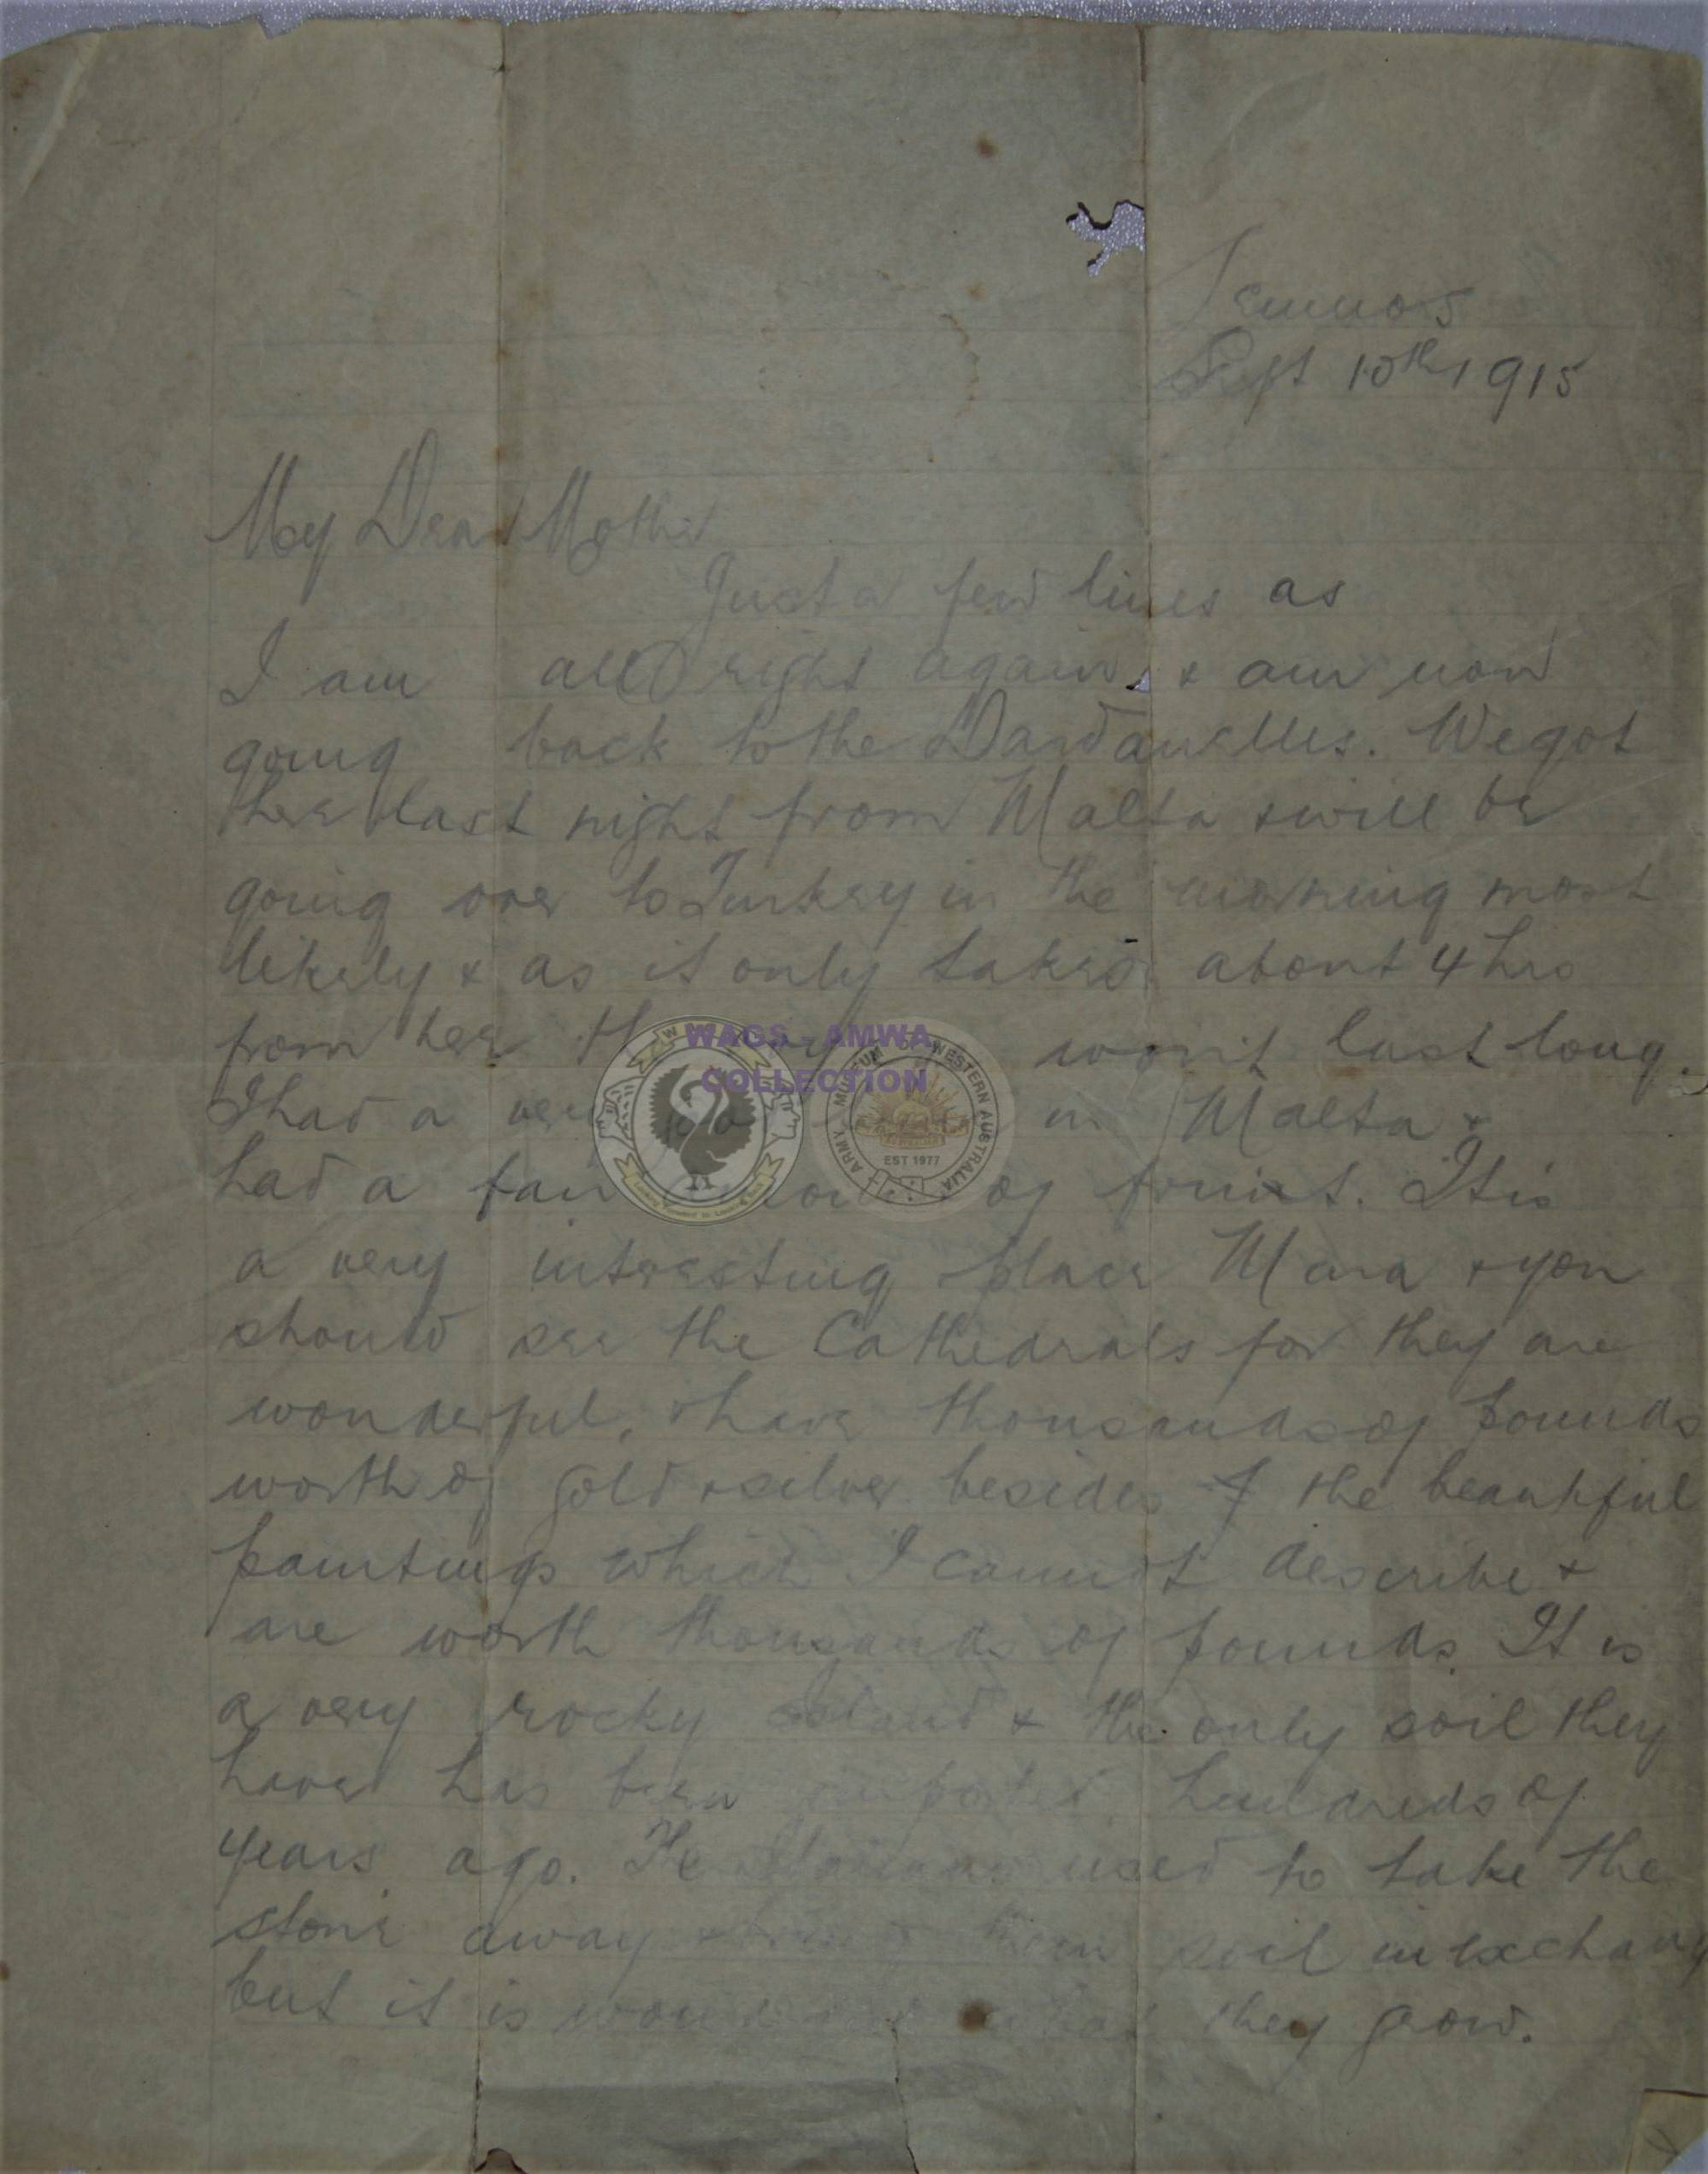 Lemnos
Sept 10th 1915
My Dear Mother
Just a few lines as
I am all right again & am now
going back to the Dardanelles. We got
here last night from Malta & will be
going over to Turkey in the morning most
likely & as it only takes about 4 hrs
from here won't last long.
I had a very in Malta &
had a fair of fruit. It is
a very interesting place Mara & you
should see the Cathedrals for they are
wonderful, & have thousands of pounds
worth of gold & silver besides of the beautiful
paintings which I cannot describe &
are worth thousands of pounds. It is
a very rocky island & the only soil they
have has been imported hundreds of
years ago. The used to take the
stone away them soil in exchang
but it is they grow.
WAGS - AMWA
COLLECTION
ARMY MUSEUM WESTERN AUSTRALIA
EST 1977